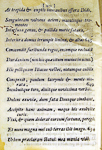 At trepida & coeptis immanibus effera Dido,
Sanguineam volvens aciem, maculisque trementes
Interfusa genas, & pallida morte futura,
Interiora domus irrumpit limina, & altos
Conscendit furibunda rogos, ensemque recludit
Dardanium, non hos quaesitum munus in usus.
Hic postquam Iliacas vestes, notumque cubile
Conspexit, paulum lacrymis & mente morata,
Incubuitque toro, dixitque novissima verba:
Dulces exuviae, dum fata Deusque sinebant,
Accipite hanc animam, meque his exsolvite curis.
Vixi, & quem dederat cursum fortuna, peregi:
Et nunc magna mei sub terras ibit imago.
Urbem praeclaram statui: mea moenia vidi: